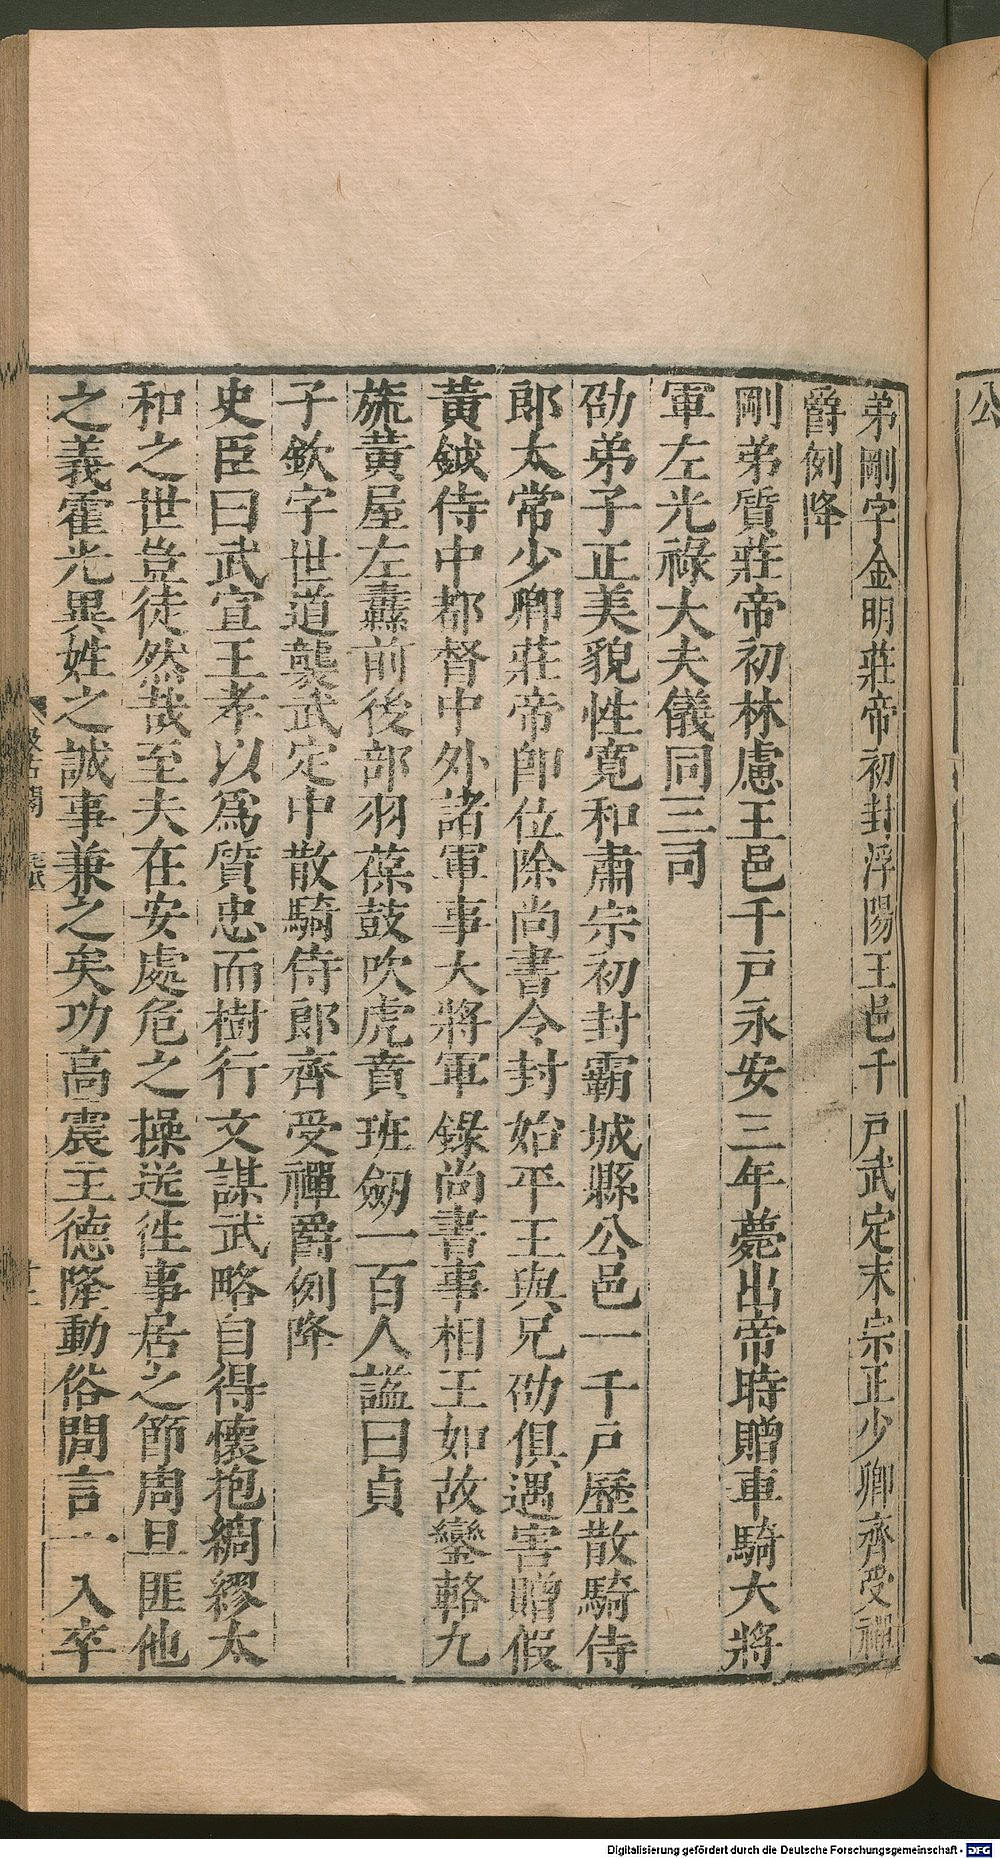 公
弟剛字金明莊帝初封浮陽王邑千戸武定末宗正少卿齊受禪
爵例降
剛弟質莊帝初林慮王邑千戸永安三年薨出帝時贈車騎大將
軍左光祿大夫儀同三司
劭弟子正美貌性寛和肅宗初封霸城縣公邑一千戸歷散騎侍
郎太常少卿莊帝即位除尚書令封始平王與兄劭俱遇害贈假
黃鉞侍中都督中外諸軍事大將軍錄尚書事相王如故鑾輅九
旒黃屋左纛前後部羽葆鼓吹虎賁班劒一百人謚曰貞
子欽字世道襲武定中散騎侍郎齊受禪爵例降
史臣曰武宣王孝以爲質忠而樹行文謀武略自得懷抱綢繆太
和之世豈徒然哉至夫在安處危之操送徃事居之節周旦匪他
之義霍光異姓之誠事兼之矣功高震主德隆動俗間言一入卒
Digitalisierung gefördert durch die Deutsche Forschungsgemeinschaft - DFG